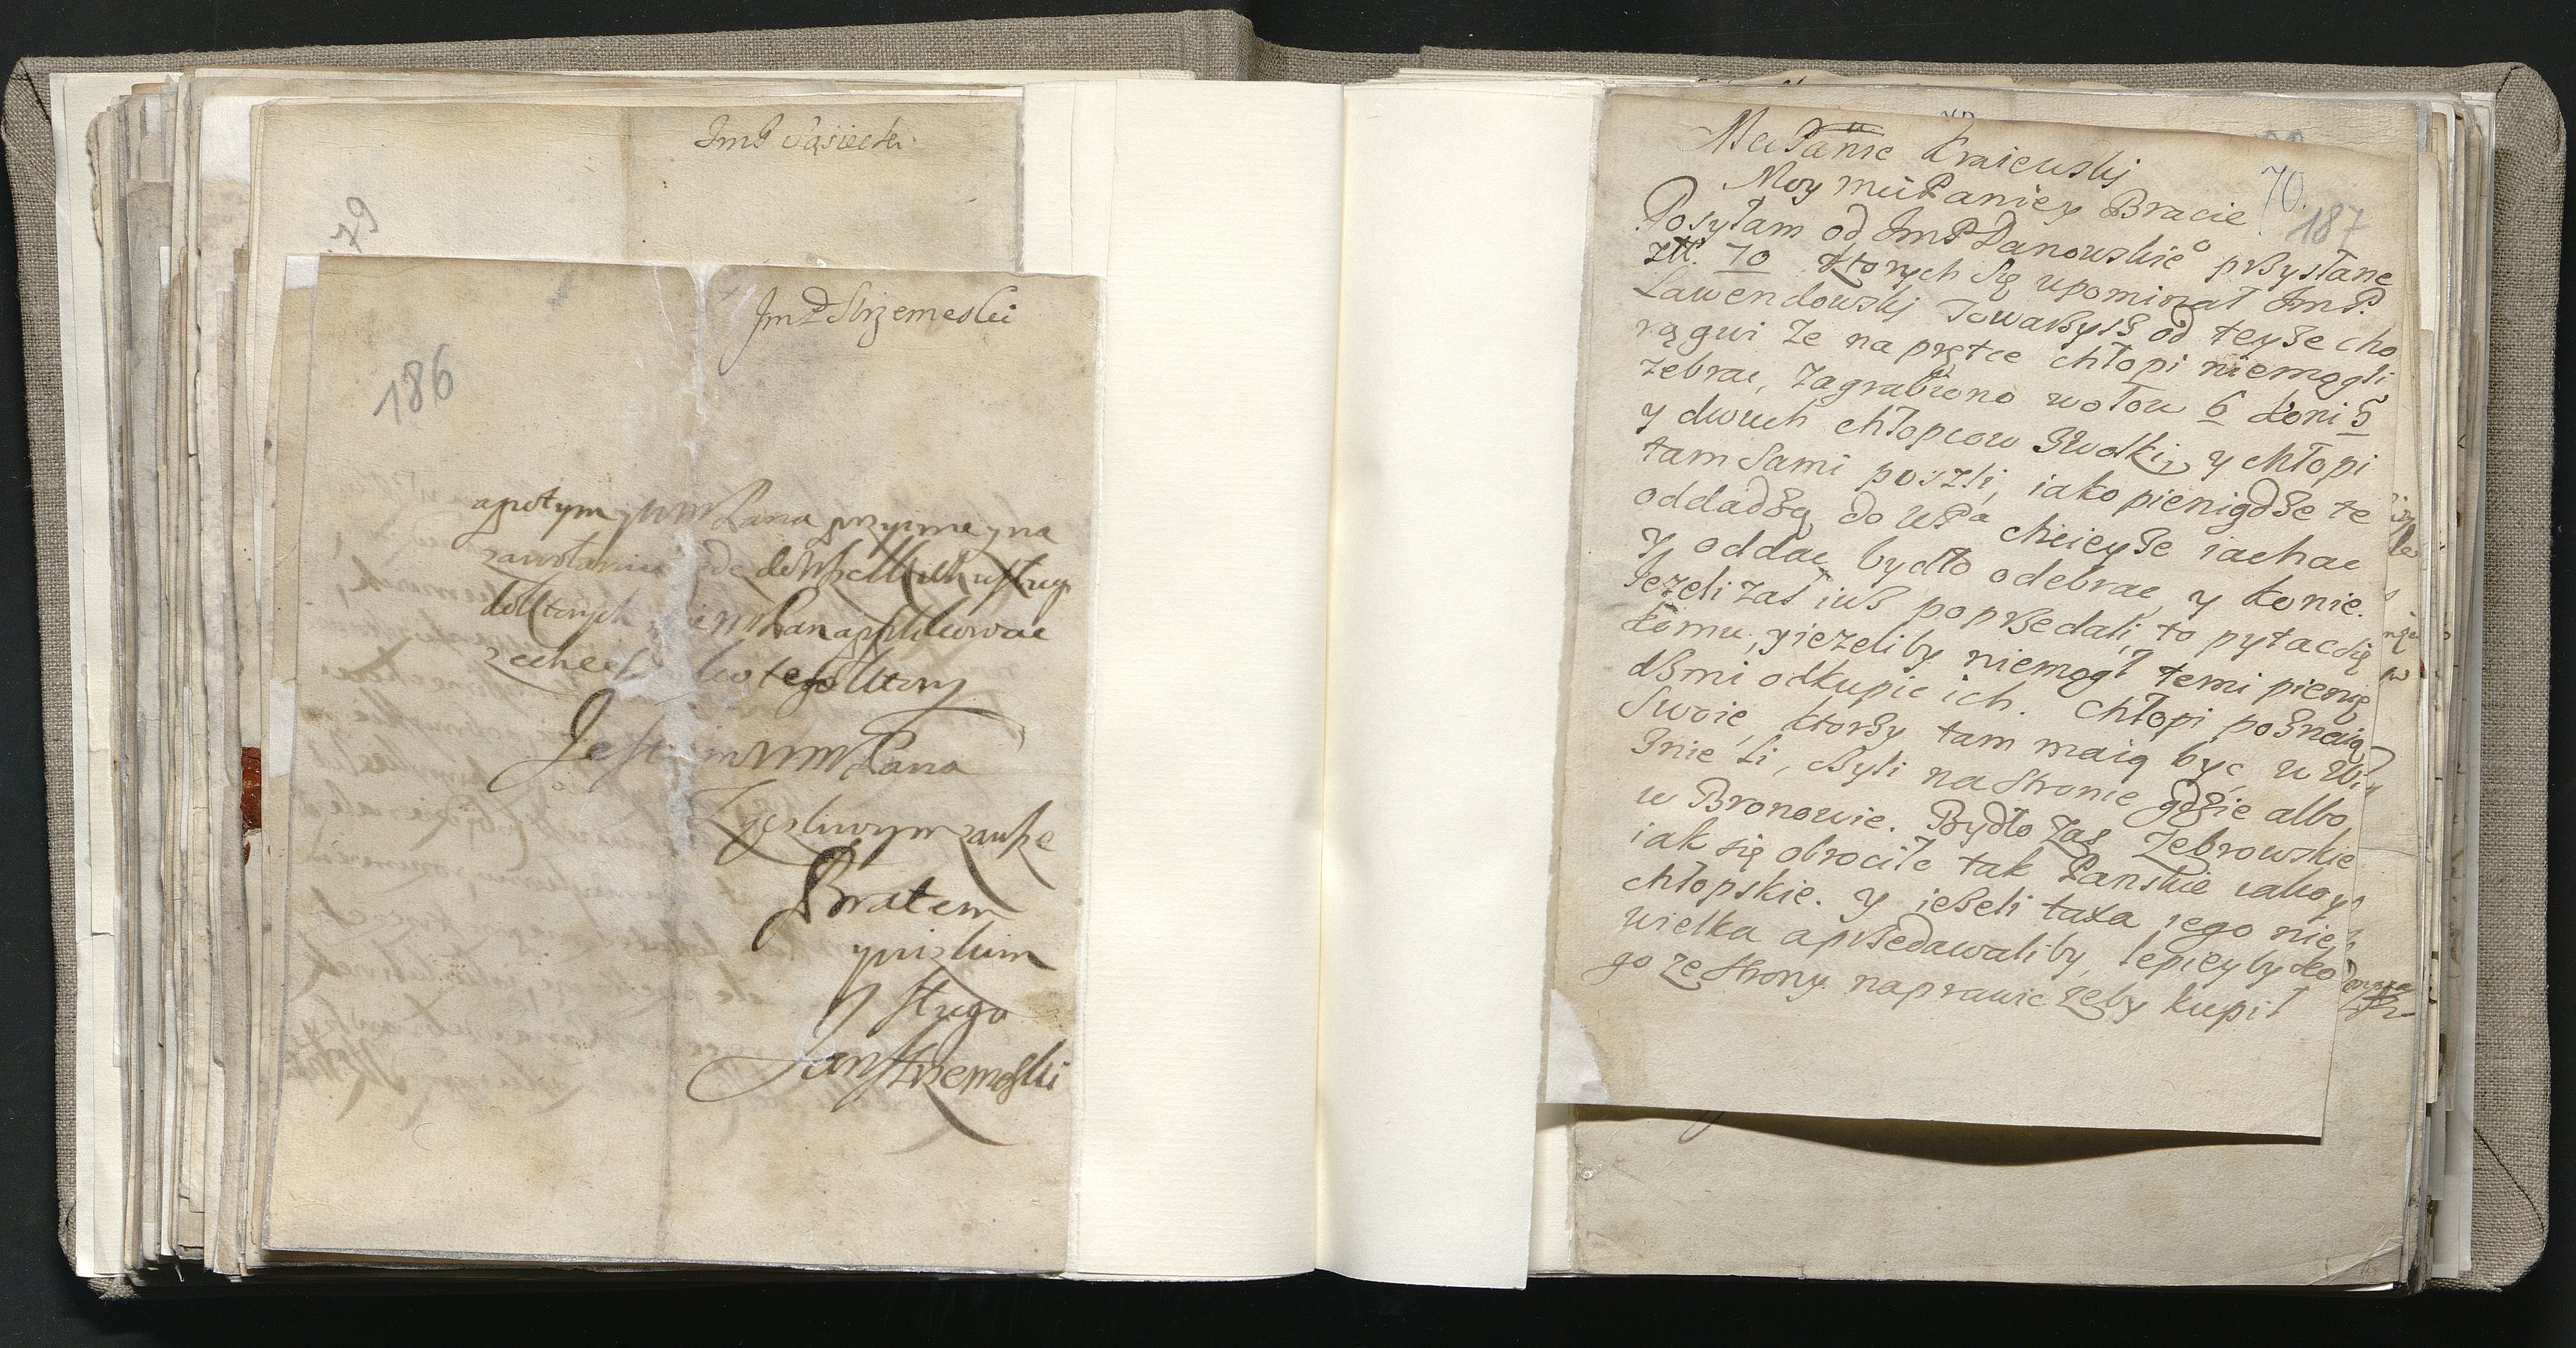 ImP Sąsiecki
79
JmP Strzemeski
186
apotym WMM Pana przyimę y na
zawołaniu do wszelkich usług
do ktorych WM Pan applikowac
zechcesz tego ktory
Jestem WMM Pana
Zyczliwym zawsze
Bratem
y niskim
Sługą
Jan Strzemeski
MciPanie Kraiewskj
Moy mciPaniey Bracie
70.
187
Posyłam od ImP Danowskieo pßysłane
złł. 70 ktorych się upominał ImP.
Lawendowskj Towaßysß od teyße cho
rągwi że na prętce chłopi niemogli
zebrac, zagrabiono wołow 6 koni 5
y dwuch chłopcow y chłopi
tam sami poszli, iako pienigdße te
oddadßą do WPa chcieyße iachac
y oddac bydło odebrac y konie.
Jezeli zas iuß popßedali, to pytac się
komu, y iezeliby niemogł temi pienię
dßmi odkupic ich. Chłopi poßnaią
swoie, ktorßy tam maią być, u Wi
ßnie li, ßyli na stronie gdßie albo
w Bronowie. Bydło zas Zebrowskie
iak się obrociłe tak Panskie iako y
chłopskie. y ießeli taxa iego nie
wielka a pßedawaliby, lepieyby ko
go ze strony naprawic zeby kupił